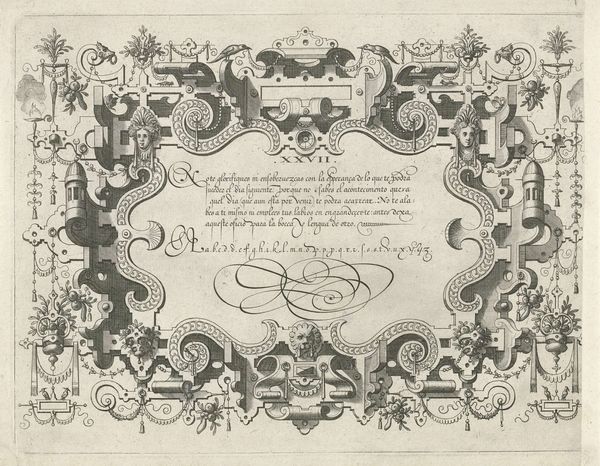 .XXVII.
No te glorifiques ni ensobervezcas con la esperança de lo que te podra
suceder el dia siguiente: porque no sabes el acontecimento que ra
quel dia que aun esta por venir te podra acarrear. No te ala
bes a ti mismo ni emplees tus labios en engrandecerte: antes dexa
aqueste oficio para la bocca y lengua de otro.
A a.b.c.d.d.e.f.g.h.i.k.l.m.n.d.p.o.p.q.r.i.s.o.s.t.v.u.x.y.y.z